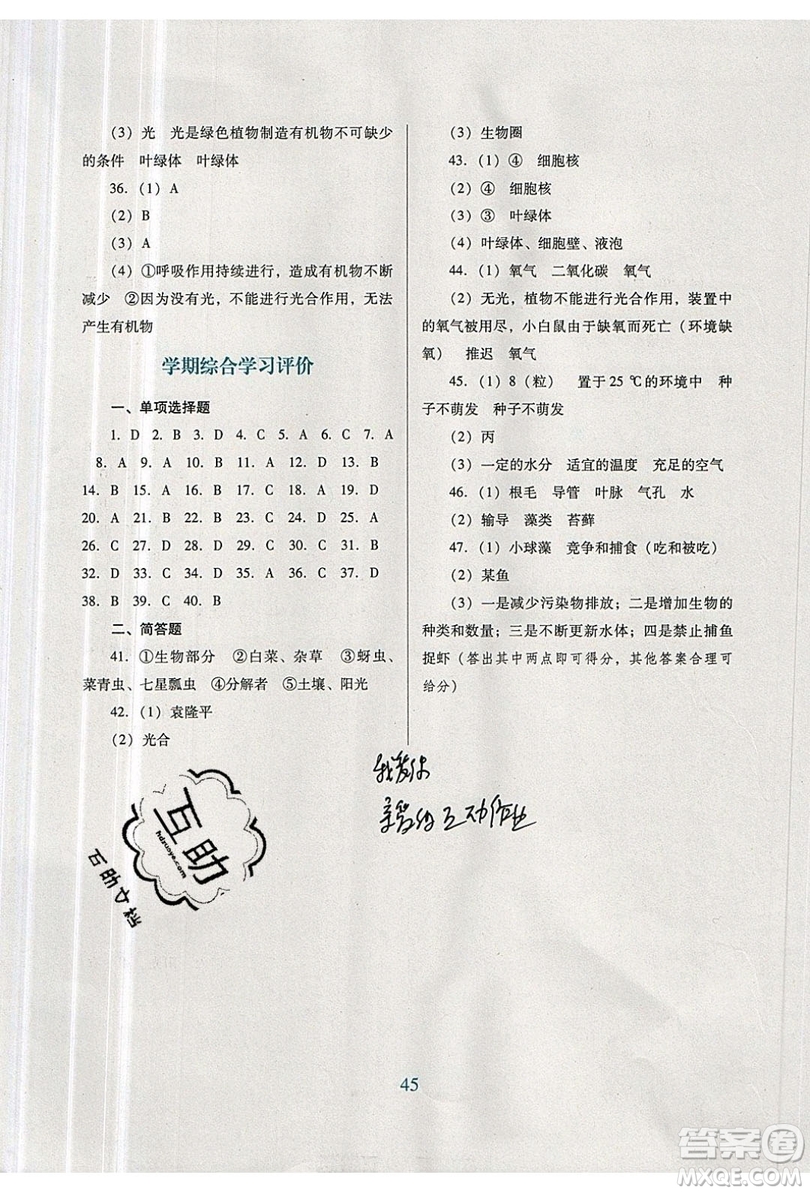 （3）光　光是绿色植物制造有机物不可缺少
的条件　叶绿体　叶绿体
36.（1）A
（2）B
（3）A
（4）①呼吸作用持续进行，造成有机物不断
减少　②因为没有光，不能进行光合作用，无法
产生有机物
学期综合学习评价
一、单项选择题
1. D　2. B　3. D　4. C　5. A　6. C　7. A
8. A　9. A　10. A　11. B　12. D　13. C
14. B　15. A　16. A　17. B　18. D　19. D
20. A　21. B　22. B　23. A　24. D　25. A
26. C　27. D　28. C　29. C　30. B　31. C
32. D　33. D　34. C　35. A　36. D　37. D
38. B　39. C　40. B
二、简答题
41. ①生物部分　②白菜、杂草　③蚜虫、
菜青虫、七星瓢虫　④分解者　⑤土壤、阳光
42.（1）袁隆平
（2）光合
（3）生物圈
43.（1）④　细胞核
（2）④　细胞核
（3）③　叶绿体
（4）叶绿体、细胞壁、液泡
44.（1）氧气　二氧化碳　氧气
（2）无光，植物不能进行光合作用，装置中
的氧气被用尽，小白鼠由于缺氧而死亡（环境缺
氧）　推迟　氧气
45.（1）8（粒）　置于 25 ℃的环境中　种
子不萌发　种子不萌发
（2）丙
（3）一定的水分　适宜的温度　充足的空气
46.（1）根毛　导管　叶脉　气孔　水
（2）输导　藻类　苔藓
47.（1）小球藻　竞争和捕食（吃和被吃）
（2）某鱼
（3）一是减少污染物排放；二是增加生物的
种类和数量；三是不断更新水体；四是禁止捕鱼
捉虾（答出其中两点即可得分，其他答案合理可
给分）
我爱你
亲爱的互动作业
互助
hdzuoye.com
45
答案圈
MXQE.COM